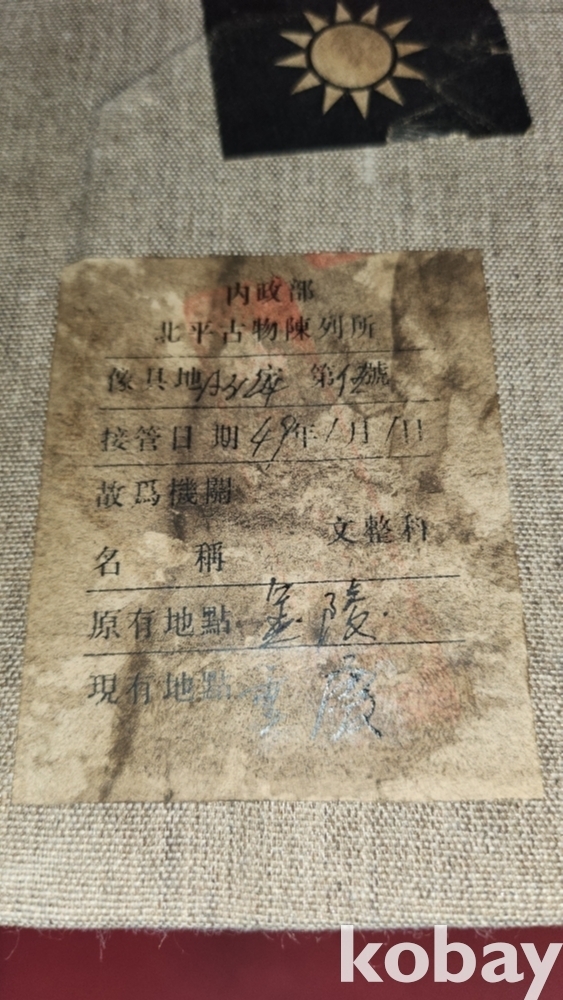 內政部
北平古物陳列所
傢具地 第 號
接管日期 49年1月1日
故爲機關
文整科
名稱
原有地點 金陵
現有地點 重慶
kobay